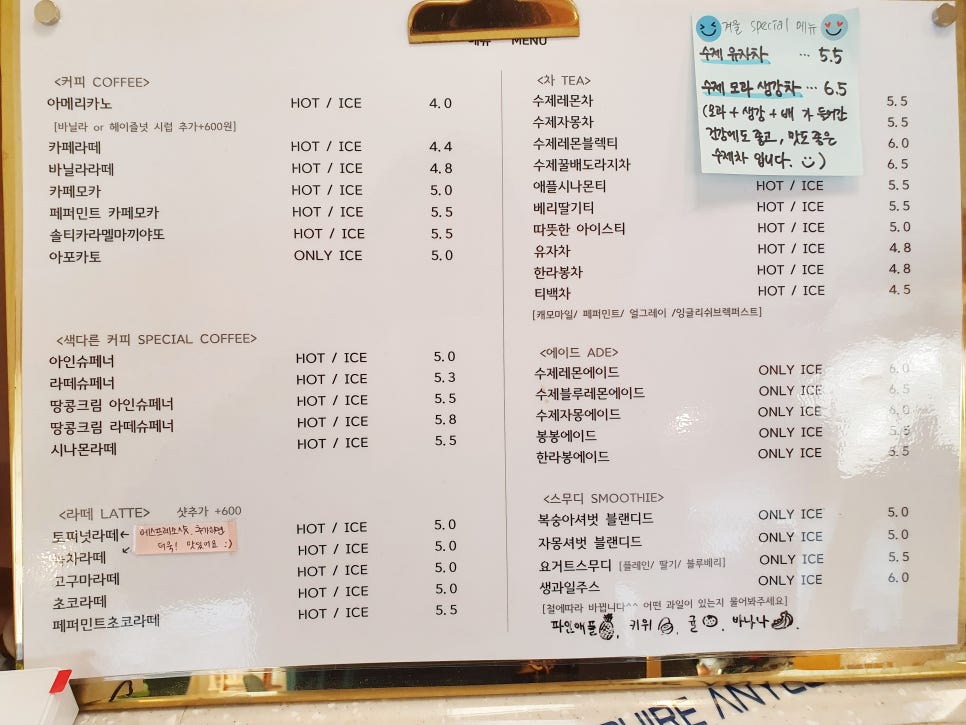 메뉴 MENU
<커피 COFFEE>
아메리카노 HOT / ICE 4.0
[바닐라 or 헤이즐넛 시럽 추가+600원]
카페라떼 HOT / ICE 4.4
바닐라라떼 HOT / ICE 4.8
카페모카 HOT / ICE 5.0
페퍼민트 카페모카 HOT / ICE 5.5
솔티카라멜마끼야또 HOT / ICE 5.5
아포카토 ONLY ICE 5.0
<색다른 커피 SPECIAL COFFEE>
아인슈페너 HOT / ICE 5.0
라떼슈페너 HOT / ICE 5.3
땅콩크림 아인슈페너 HOT / ICE 5.5
땅콩크림 라떼슈페너 HOT / ICE 5.8
시나몬라떼 HOT / ICE 5.5
<라떼 LATTE> 샷추가 +600
토피넛라떼 HOT / ICE 5.0
에스프레소샷 추가하면
더욱! 맛있어요 :)
차라떼 HOT / ICE 5.0
고구마라떼 HOT / ICE 5.0
초코라떼 HOT / ICE 5.0
페퍼민트초코라떼 HOT / ICE 5.5
겨울 special 메뉴
수제 유자차 ... 5.5
수제 모과 생강차 ... 6.5
(모과 + 생강 + 배 가 들어간
건강에도 좋고, 맛도 좋은
수제차 입니다. :)
<차 TEA>
수제레몬차 5.5
수제자몽차 5.5
수제레몬블렉티 6.0
수제꿀배도라지차 6.5
애플시나몬티 HOT / ICE 5.5
베리딸기티 HOT / ICE 5.5
따뜻한 아이스티 HOT / ICE 5.0
유자차 HOT / ICE 4.8
한라봉차 HOT / ICE 4.8
티백차 HOT / ICE 4.5
[캐모마일/ 페퍼민트/ 얼그레이 /잉글리쉬브렉퍼스트]
<에이드 ADE>
수제레몬에이드 ONLY ICE 6.0
수제블루레몬에이드 ONLY ICE 6.5
수제자몽에이드 ONLY ICE 6.0
봉봉에이드 ONLY ICE 5.5
한라봉에이드 ONLY ICE 5.5
<스무디 SMOOTHIE>
복숭아셔벗 블랜디드 ONLY ICE 5.0
자몽셔벗 블랜디드 ONLY ICE 5.0
요거트스무디 [플레인/ 딸기/ 블루베리] ONLY ICE 5.5
생과일주스 ONLY ICE 6.0
[철에따라 바뀝니다^^ 어떤 과일이 있는지 물어봐주세요]
파인애플, 키위, 귤, 바나나